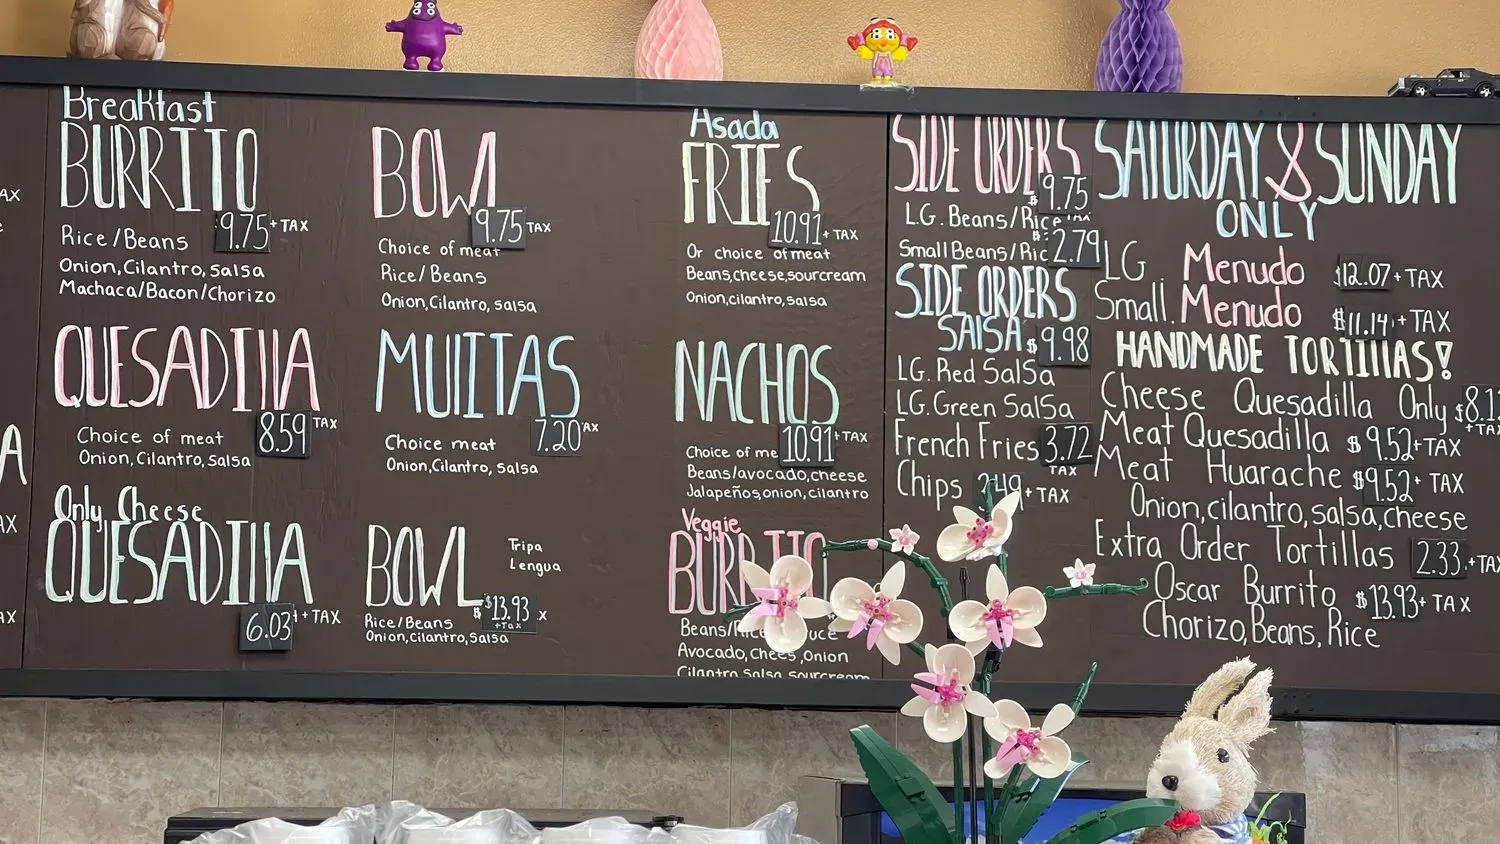 Breakfast
BURRITO
9.75 + TAX
Rice/Beans
Onion,Cilantro,Salsa
Machaca/Bacon/Chorizo
QUESADILLA
8.59 TAX
Choice of meat
Onion,Cilantro,Salsa
Only Cheese
QUESADILLA
6.03 + TAX
BOWL
9.75 TAX
Choice of meat
Rice/Beans
Onion,Cilantro,Salsa
MULITAS
7.20 AX
Choice meat
Onion,Cilantro,Salsa
BOWL
Tripa
Lengua
$13.93
+TAX
Rice/Beans
Onion,Cilantro,Salsa
Asada
FRIES
10.91 + TAX
Or choice of meat
Beans,cheese,sourcream
Onion,cilantro,salsa
NACHOS
10.91 +TAX
Choice of me
Beans/avocado,cheese
Jalapeños,onion,cilantro
Veggie
BURRITO
Beans/Rice
Avocado,Chees,Onion
Cilantro Salsa sourcream
SIDE ORDERS
9.75
LG.Beans/Rice
Small Beans/Ric $2.79
SIDE ORDERS
SALSA $9.98
LG.Red SalSa
LG.Green SalSa
French Fries 3.72
TAX
Chips 2.49 + TAX
SATURDAY & SUNDAY
ONLY
LG Menudo $12.07 + TAX
Small. Menudo $11.14 + TAX
HANDMADE TORTILLAS!
Cheese Quesadilla Only $8.1
+TAX
Meat Quesadilla $9.52 +TAX
Meat Huarache $9.52 + TAX
Onion,cilantro,salsa,cheese
Extra Order Tortillas 2.33 +TAX
Oscar Burrito $13.93 + TAX
Chorizo,Beans,Rice